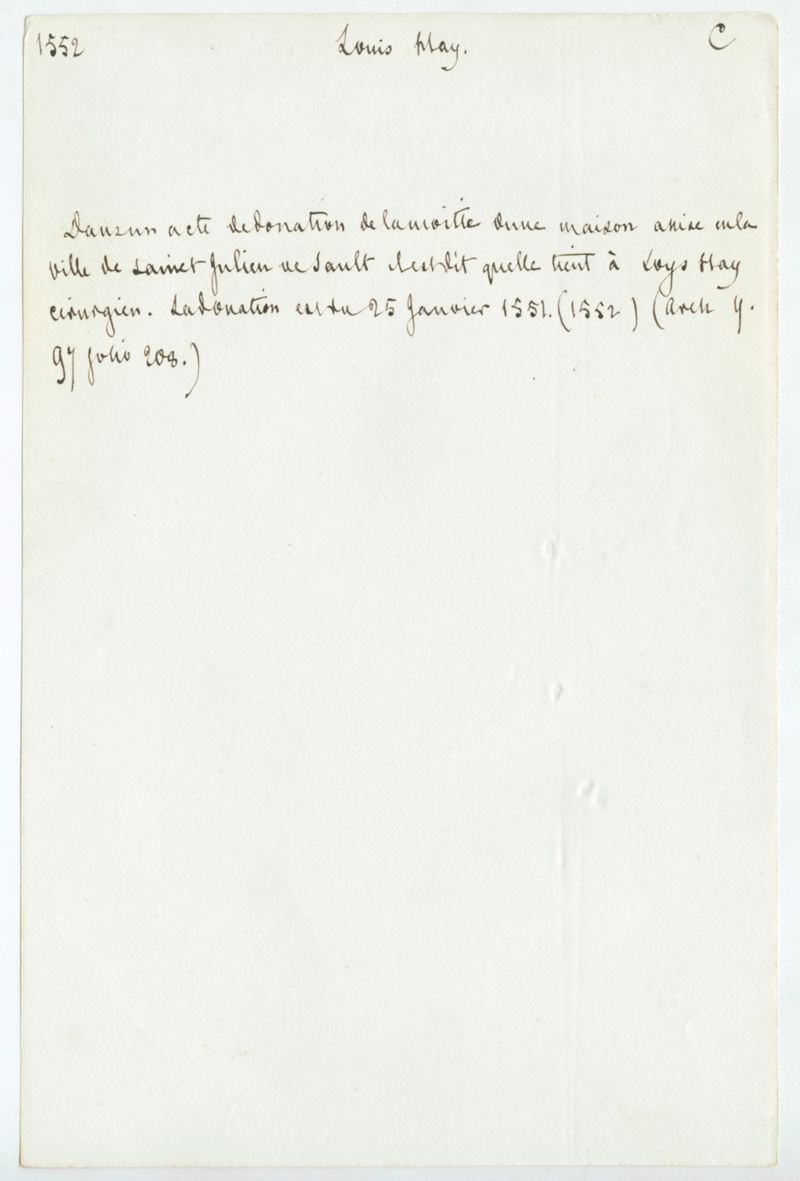 1552 Louis Hay. C
Dans un acte de donation de la moitié dune maison assise en la
ville de Sainct Julien de Sault il est dit quelle tient à Loys Hay
cirurgien. La donation est du 25 Janvier 1551. (1552) (Arch Y.
97 folio 208.)